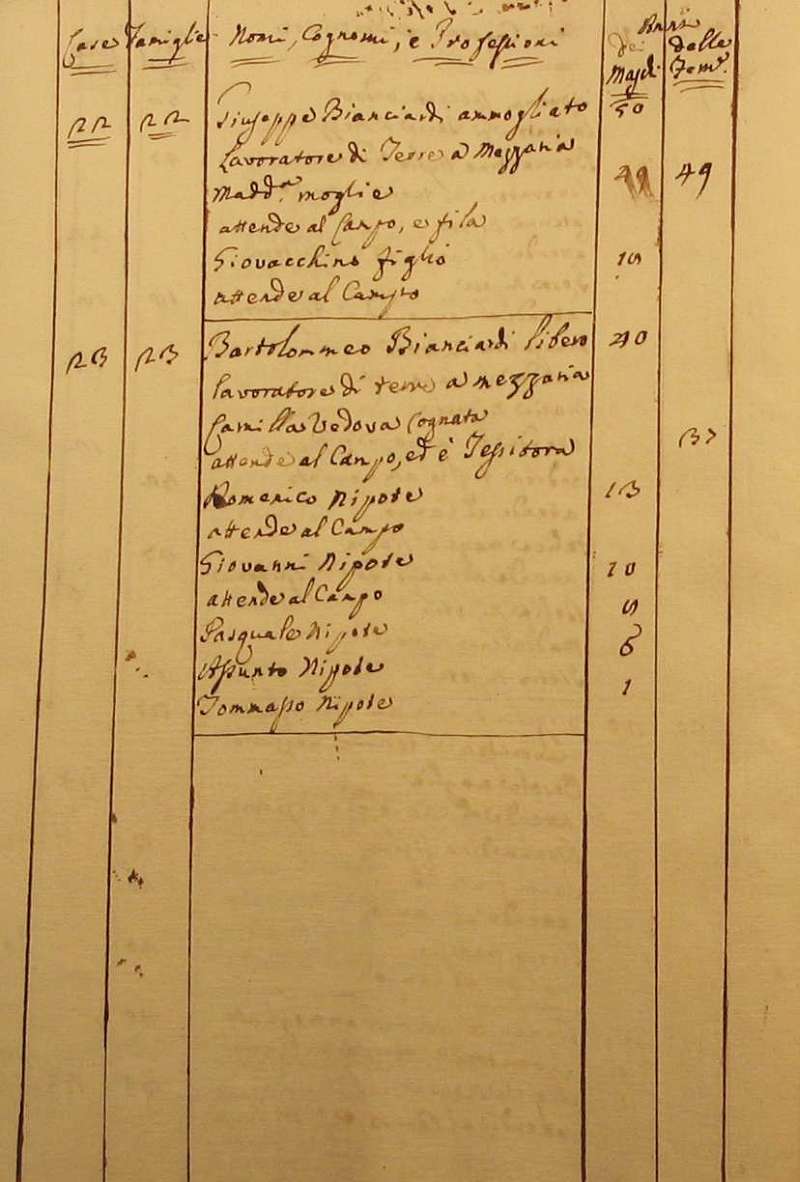 Case Famiglie Nomi, Cognomi, e Professioni Anni
dei Maschi delle Fem.e
22 22 Giuseppe Bianciardi ammogliato 50
Lavoratore di Terre a Mezzaria
Madd.a moglie 49
attende al Campo, e fila
Giovacchino figlio
attende al Campo
23 23 Bartolommeo Bianciardi libero 40
lavoratore di terre a mezzaria
Camilla Vedova Cognata
attende al Campo, ed è Tessitora 37
Domenico Nipote 13
attende al Campo
Giovanni Nipote 10
attende al Campo
Pasquale Nipote
Assunto Nipote 6
Tommasso Nipote 1